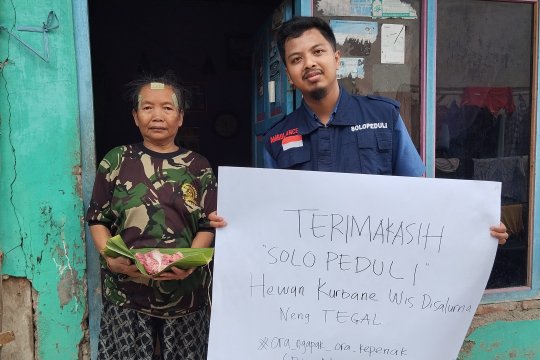 AMBULANCE
SOLOPEDULI
TERIMAKASIH
"SOLO PEDULI"
Hewan Kurbane Wis Disalurna
Neng TEGAL
#ora_ngapak_ora_kepenak